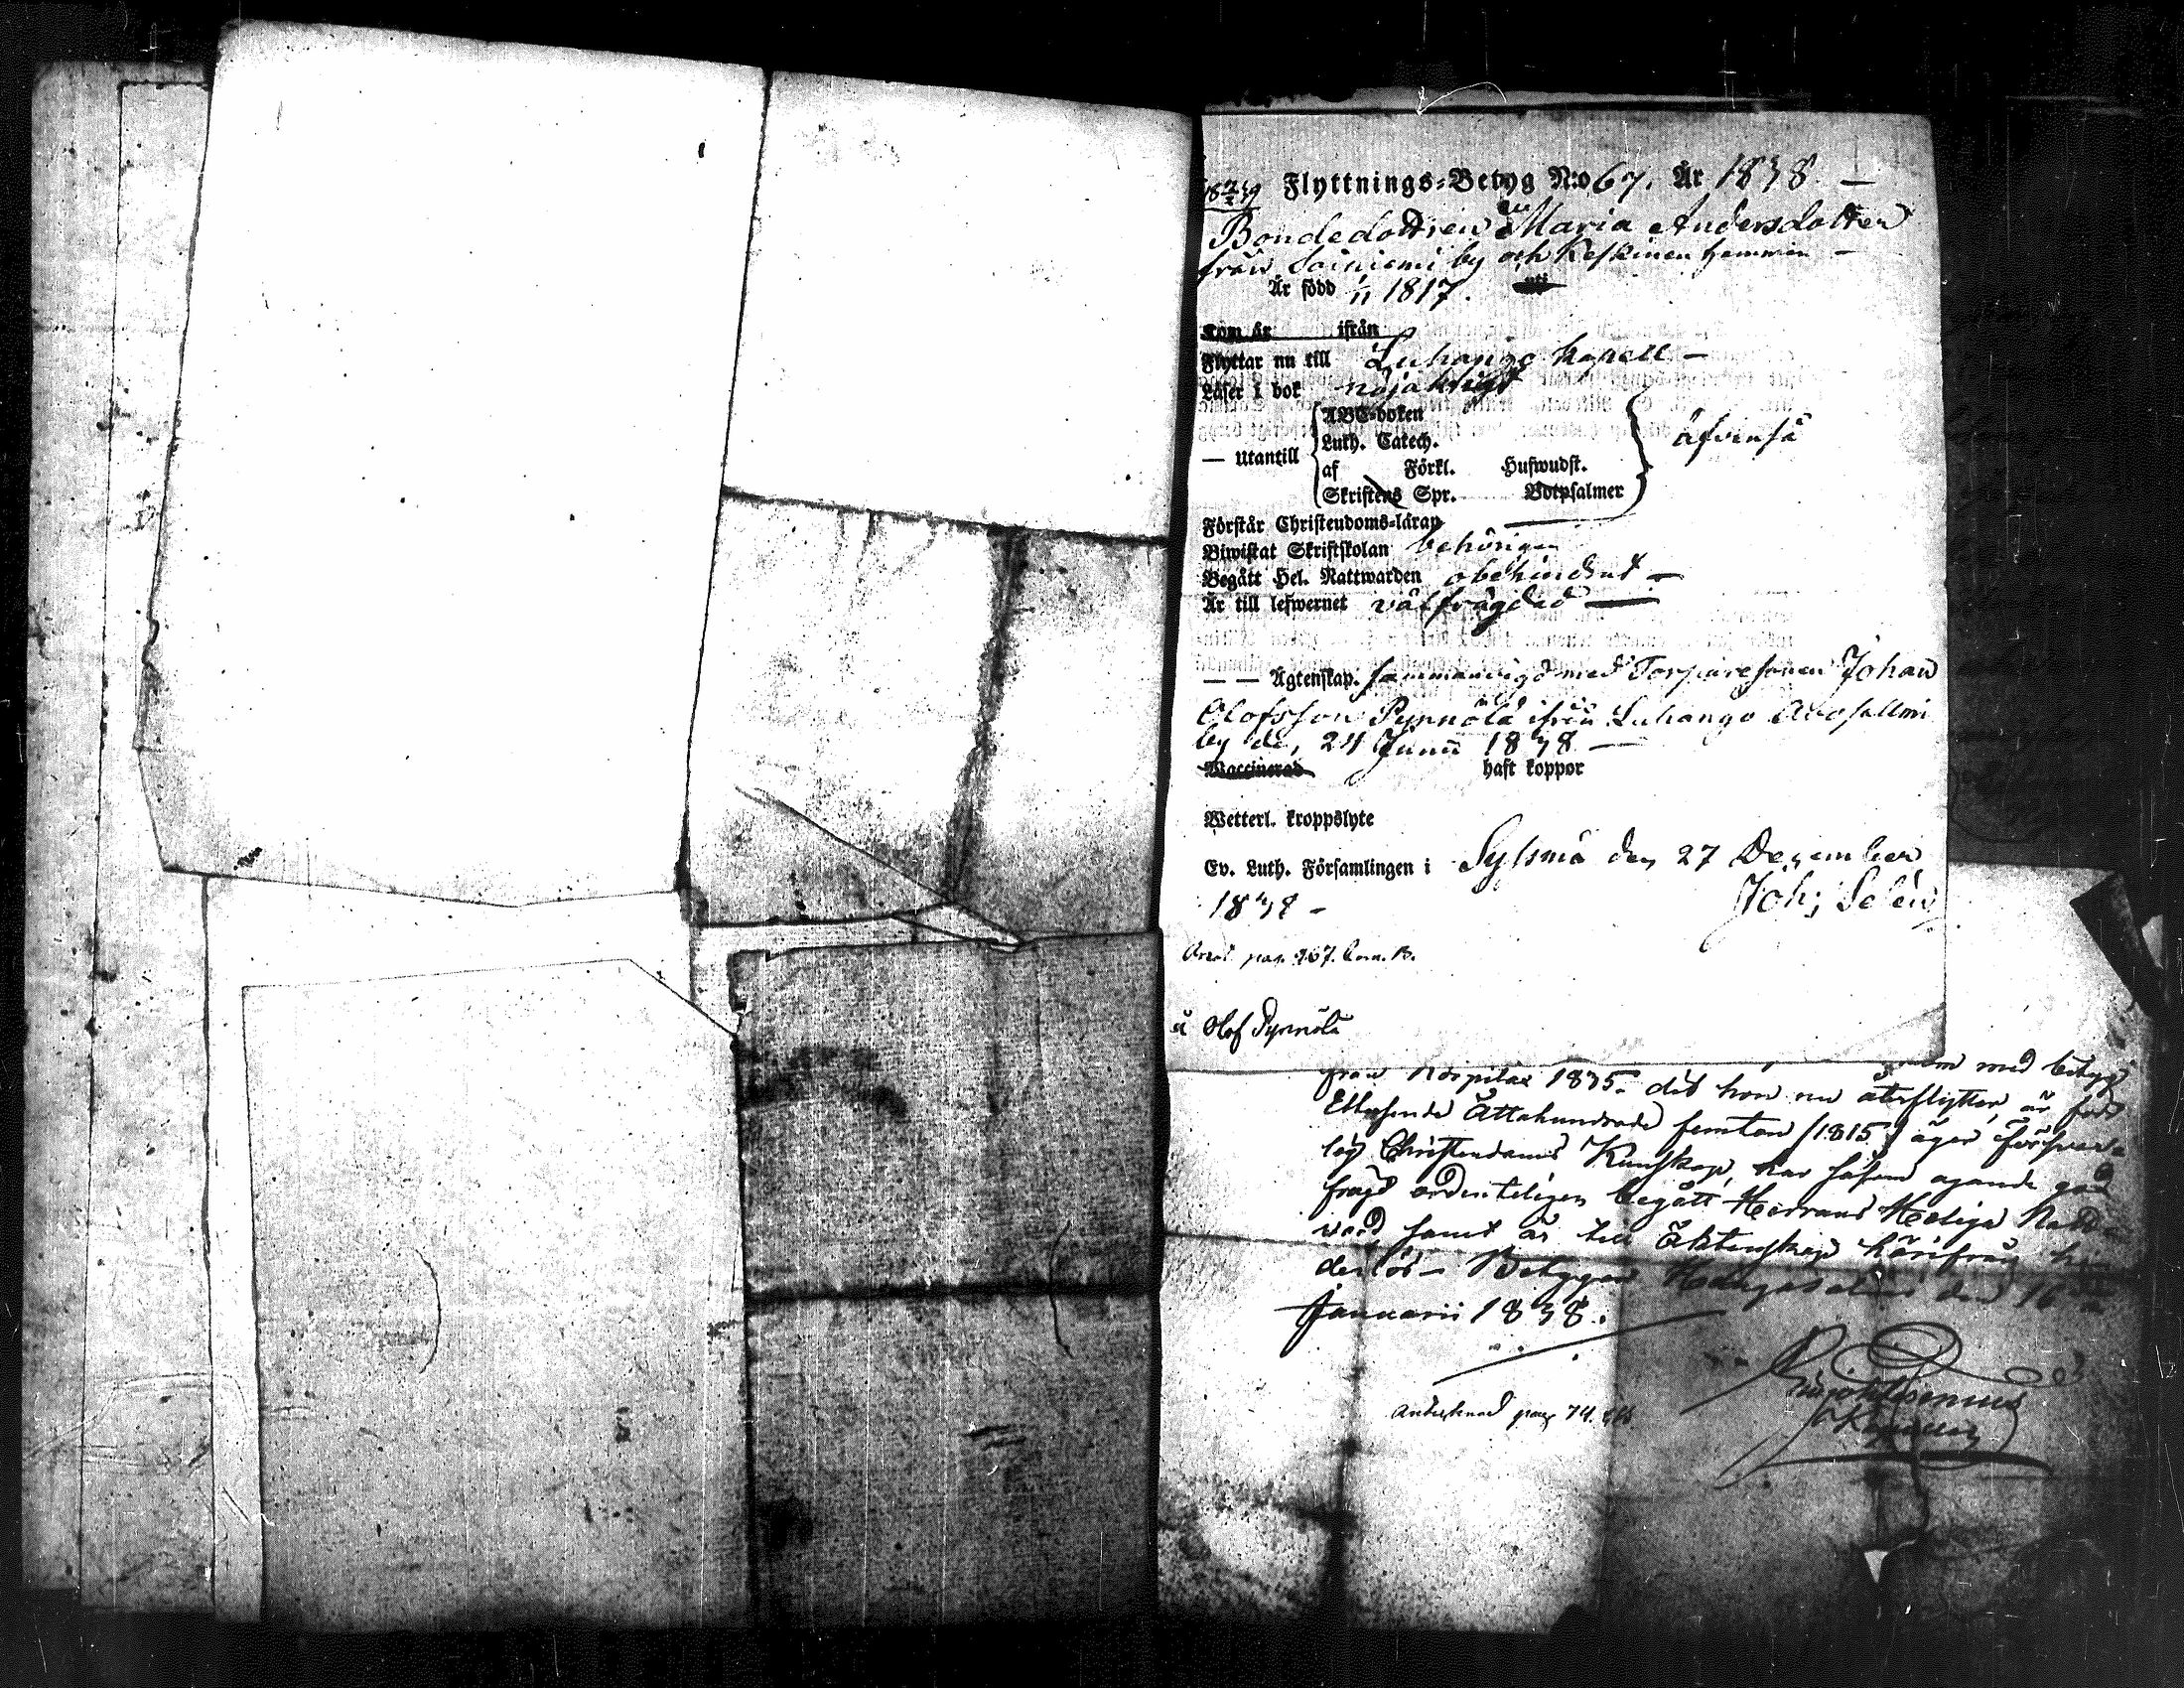 Flyttnings-Betyg N:o 67. År 1838 —
Bondedottren Maria Andersdotter
från Soiniemi by och Keskinen hemman —
Är född 1/11 1817.
Kom år ifrån
Flyttar nu till Luhango kapell —
Läser i bok nöjaktigt
— utantill
ABC-boken
Luth. Catech.
af Förkl. Huswudst.
Skriftens Spr. Botpsalmer
äfvenså
Förstår Christendoms-läran
Biwistat Skriftskolan behörigen
Begått Hel. Nattwarden obehindrat —
Är till lefwernet välfrägdad —
— — Ägtenskap. sammanvigd med Torparesonen Johan
Olofsson Pynnölä ifrån Luhango
by den 24 Junii 1838 —
Waccinerad haft koppor
Wetterl. kroppslyte
Ev. Luth. Församlingen i Sysmä den 27 December
1838 —
Joh; Selén
pag. 267.
å Olof Pynnölä
från 1835. dit hon nu återflyttar, är född
Ettusende Åttahundrade femton (1815) äger försvar-
lig Christendoms Kunskap, har såsom ägande god
frägd ordenteligen begått Herrans Heliga Natt-
vard samt är till Äktenskap härifrån hin-
derlös — Betygar den 16
Januarii 1838.
Antecknad pag 74.